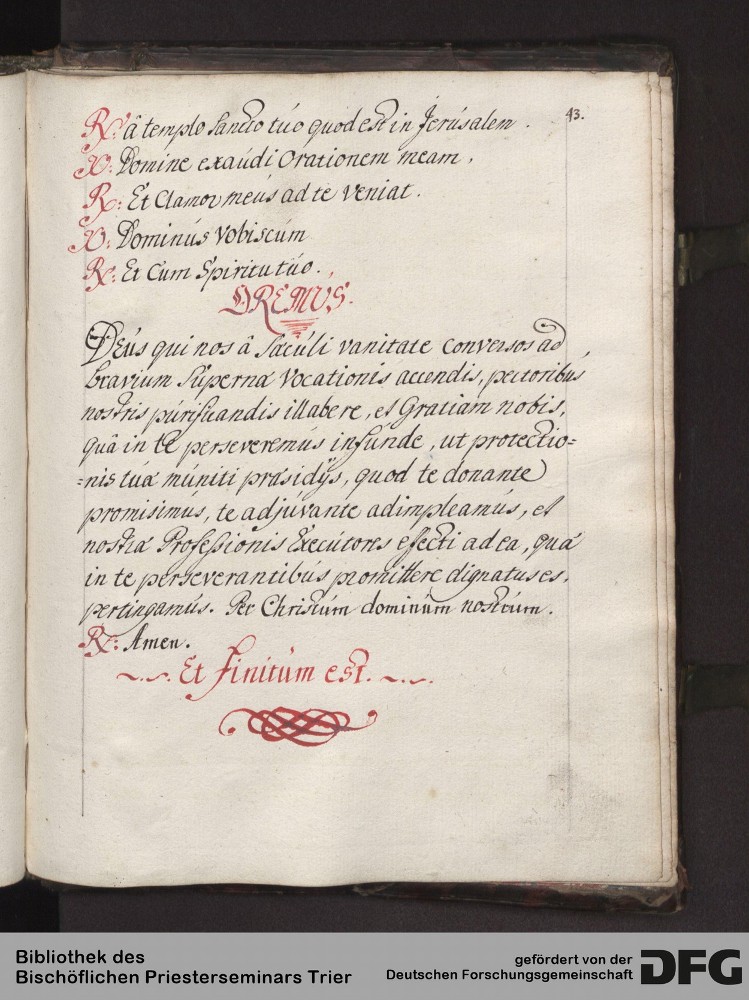 43.
℟: â templo Sancto túo quod est in Jerúsalem.
℣: Domine exaúdi Orationem meam.
℟: Et Clamor meús ad te Veniat.
℣: Dominús Vobiscúm
℟: Et Cum Spiritu túo.
OREMÚS.
Deús qui nos â Sæcúli vanitate Conversos ad
bravium Súpernæ Vocationis accendis, pectoribús
nostris púrificandis illabere, et Gratiam nobis,
quâ in te perseveremús infúnde, ut protectio=
=nis túæ múniti præsidijs, quod te donante
promisimús, te adjúvante adimpleamús, et
nostræ Professionis Execútores efecti ad ea, quæ
in te perseverantibús promittere dignatus es,
pertingamús. Per Christúm dominúm nostrúm.
℟: Amen.
~.~. Et Finitúm est. ~.~.
Bibliothek des
Bischöflichen Priesterseminars Trier
gefördert von der
Deutschen Forschungsgemeinschaft
DFG